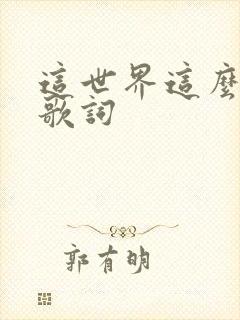 這世界這麼
歌詞
郭有明